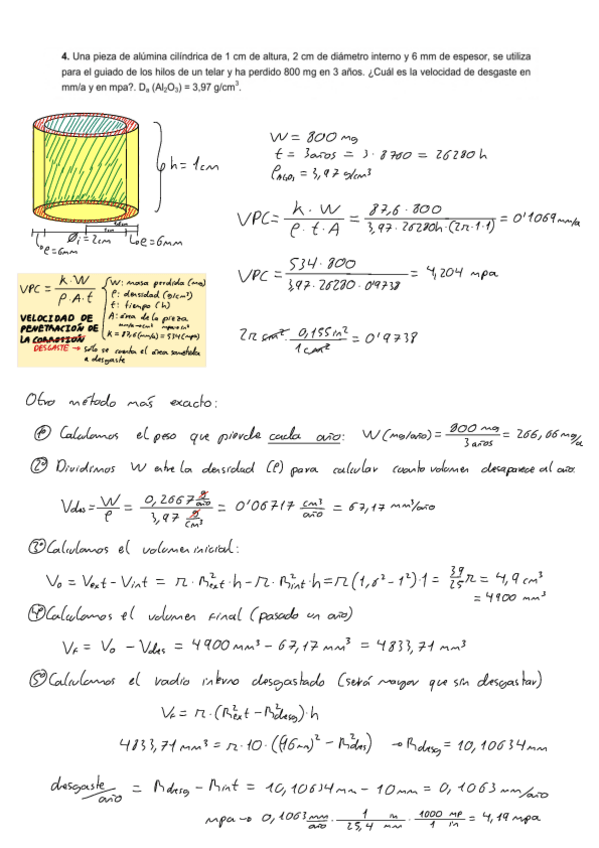 4. Una pieza de alúmina cilíndrica de 1 cm de altura, 2 cm de diámetro interno y 6 mm de espesor, se utiliza
para el guiado de los hilos de un telar y ha perdido 800 mg en 3 años. ¿Cuál es la velocidad de desgaste en
mm/a y en mpa?. Dₐ (Al₂O₃) = 3,97 g/cm³.
h = 1cm
Øi = 2cm
e = 6mm
e = 6mm
W = 800 mg
t = 3años = 3 · 8760 = 26280 h
ρAl2O3 = 3,97 g/cm³
VPC = k·W / ρ·t·A = 87,6·800 / 3,97·26280h·(2π·1·1) = 0'1069 mm/a
VPC = 534·800 / 3,97·26280·0'9738 = 4,204 mpa
2π cm² · 0,155in² / 1cm² = 0'9738
VPC = k·W / ρ·A·t
W: masa perdida (mg)
ρ: densidad (g/cm³)
t: tiempo (h)
A: área de la pieza
mm/a→cm² mpa→in²
k = 87,6 (mm/a) = 534 (mpa)
VELOCIDAD DE
PENETRACIÓN DE
LA CORROSIÓN
DESGASTE → solo se cuenta el área sometida
a desgaste
Otro método más exacto:
1º Calculamos el peso que pierde cada año: W (mg/año) = 800 mg / 3 años = 266,66 mg/a
2º Dividimos W entre la densidad (ρ) para calcular cuanto volumen desaparece al año.
Vdes = W / ρ = 0,2667 g/año / 3,97 g/cm³ = 0'06717 cm³/año = 67,17 mm³/año
3º Calculamos el volumen inicial:
V₀ = Vext − Vint = π · R²ext · h − π · R²int · h = π (1,6² − 1²) · 1 = 39/25 π = 4,9 cm³
= 4900 mm³
4º Calculamos el volumen final (pasado un año)
Vf = V₀ − Vdes = 4900 mm³ − 67,17 mm³ = 4833,71 mm³
5º Calculamos el radio interno desgastado (será mayor que sin desgastar)
Vf = π · (R²ext − R²desg) · h
4833,71 mm³ = π · 10 · ((16mm)² − R²des) → Rdesg = 10,10634 mm
desgaste/año = Rdesg − Rint = 10,10634 mm − 10mm = 0,1063 mm/año
mpa → 0,1063 mm/año · 1 in / 25,4 mm · 1000 MP / 1 in = 4,19 mpa